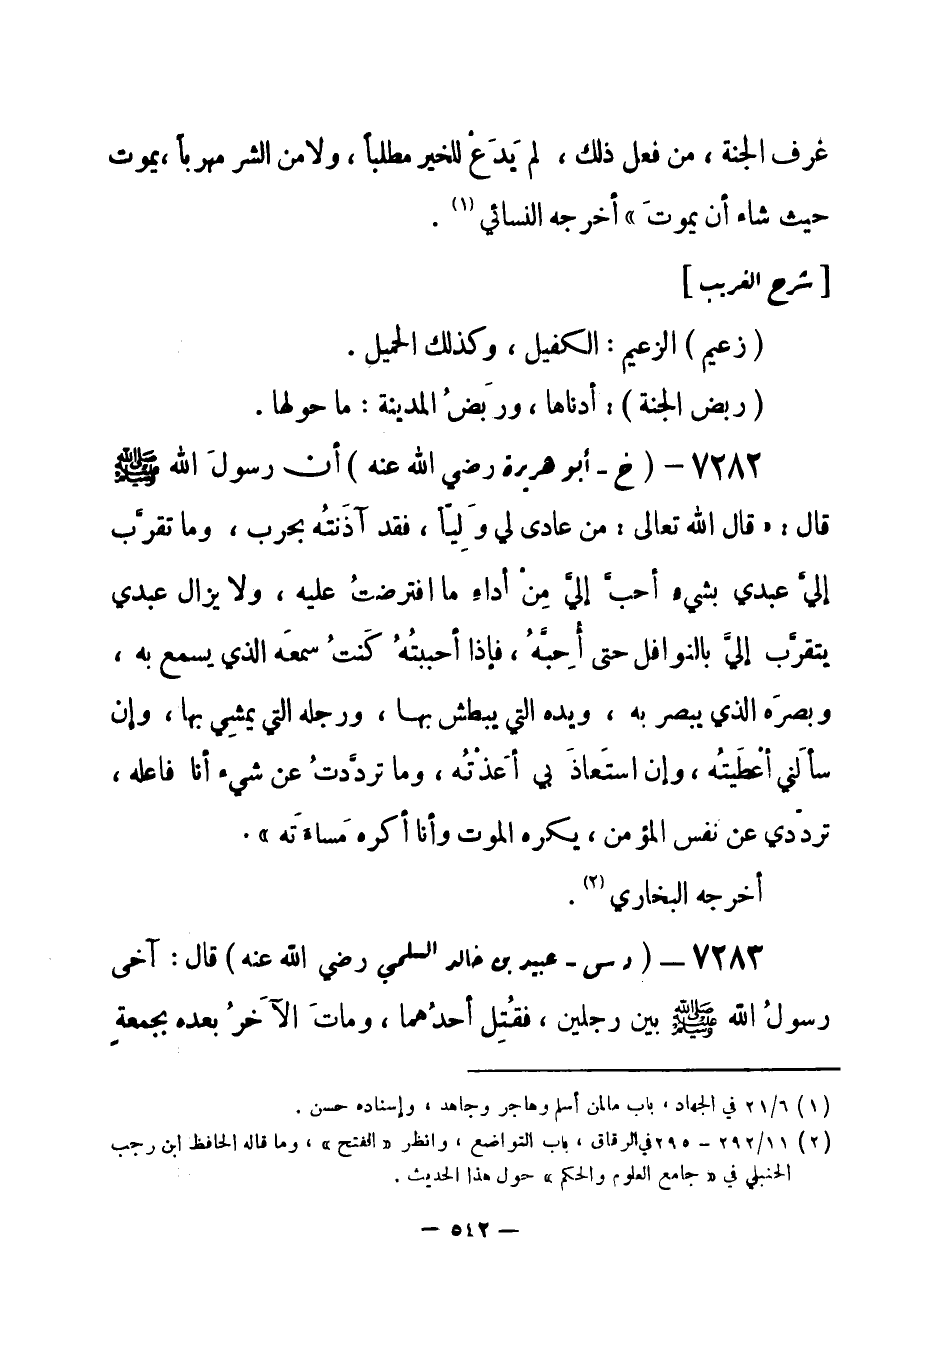 غرف الجنة ، من فعل ذلك ، لم يَدَعْ للخير مطلباً ، ولا من الشر مهرباً ، يموت
حيث شاء أن يموتَ » أخرجه النسائي (١) .
[ شرح الغريب ]
( زعيم ) الزعيم : الكفيل ، وكذلك الحميل .
( ربض الجنة ) : أدناها ، ورَبَضُ المدينة : ما حولها .
٧٢٨٢ – ( خ - أبو هريرة رضي الله عنه ) أن رسولَ الله ﷺ
قال : « قال الله تعالى : من عادى لي وَلِيّاً ، فقد آذَنتُه بحرب ، وما تقرَّب
إليَّ عبدي بشيء أحبَّ إليَّ مِنْ أداءِ ما افترضتُ عليه ، ولا يزال عبدي
يتقرَّب إليَّ بالنوافل حتى أُحِبَّهُ ، فإذا أحببتُهُ كنتُ سمعَه الذي يسمع به ،
وبصرَه الذي يبصر به ، ويده التي يبطش بها ، ورجله التي يمشي بها ، وإن
سألني أعْطَيتُه ، وإن استَعاذَ بي أعَذْتُه ، وما تردَّدتُ عن شيء أنا فاعله ،
تردّدي عن نفس المؤمن ، يكره الموت وأنا أكره مَساءَتَه » .
أخرجه البخاري (٢) .
٧٢٨٣ – ( د س - عبيد بن خالد السلمي رضي الله عنه ) قال : آخى
رسولُ الله ﷺ بين رجلين ، فقُتِل أحدُهما ، وماتَ الآخَرُ بعده بجمعةٍ
(١) ٢١/٦ في الجهاد ، باب مالمن أسلم وهاجر وجاهد ، وإسناده حسن .
(٢) ٢٩٢/١١ – ٢٩٥ في الرقاق ، باب التواضع ، وانظر « الفتح » ، وما قاله الحافظ ابن رجب
الحنبلي في « جامع العلوم والحكم » حول هذا الحديث .
– ٥٤٢ –